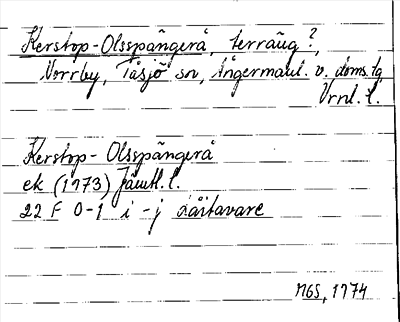 Kerstop-Olsspångerå, terräng?,
Norrby, Tåsjö sn, Ångermanl. v. doms.lg,
Vrnl. l.
Kerstop-Olsspångerå
ek (1973) Jämtl. l.
22 F 0-1 i-j Låitavare
MGS, 1974